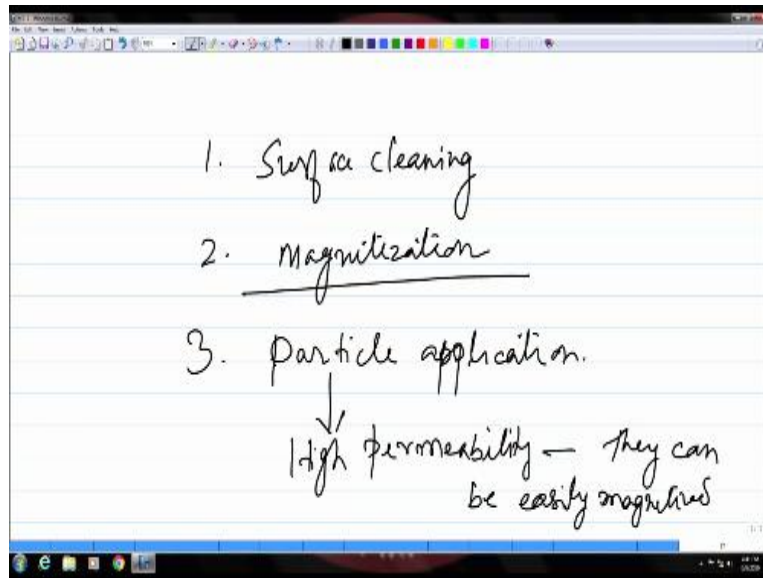 1. Surface cleaning
2. Magnitization
3. Particle application.
High permeability – They can
be easily magnetized